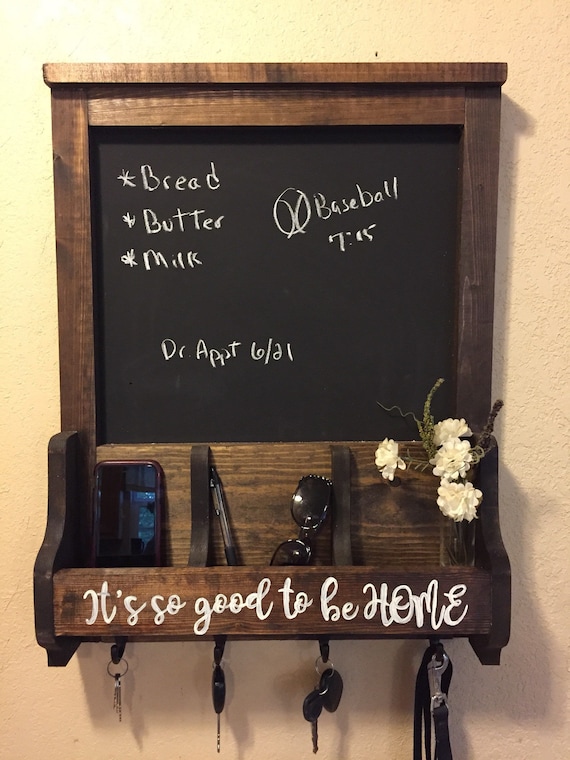 *Bread
*Butter
*Milk
Baseball
7:15
Dr. Appt 6/21
It's so good to be HOME